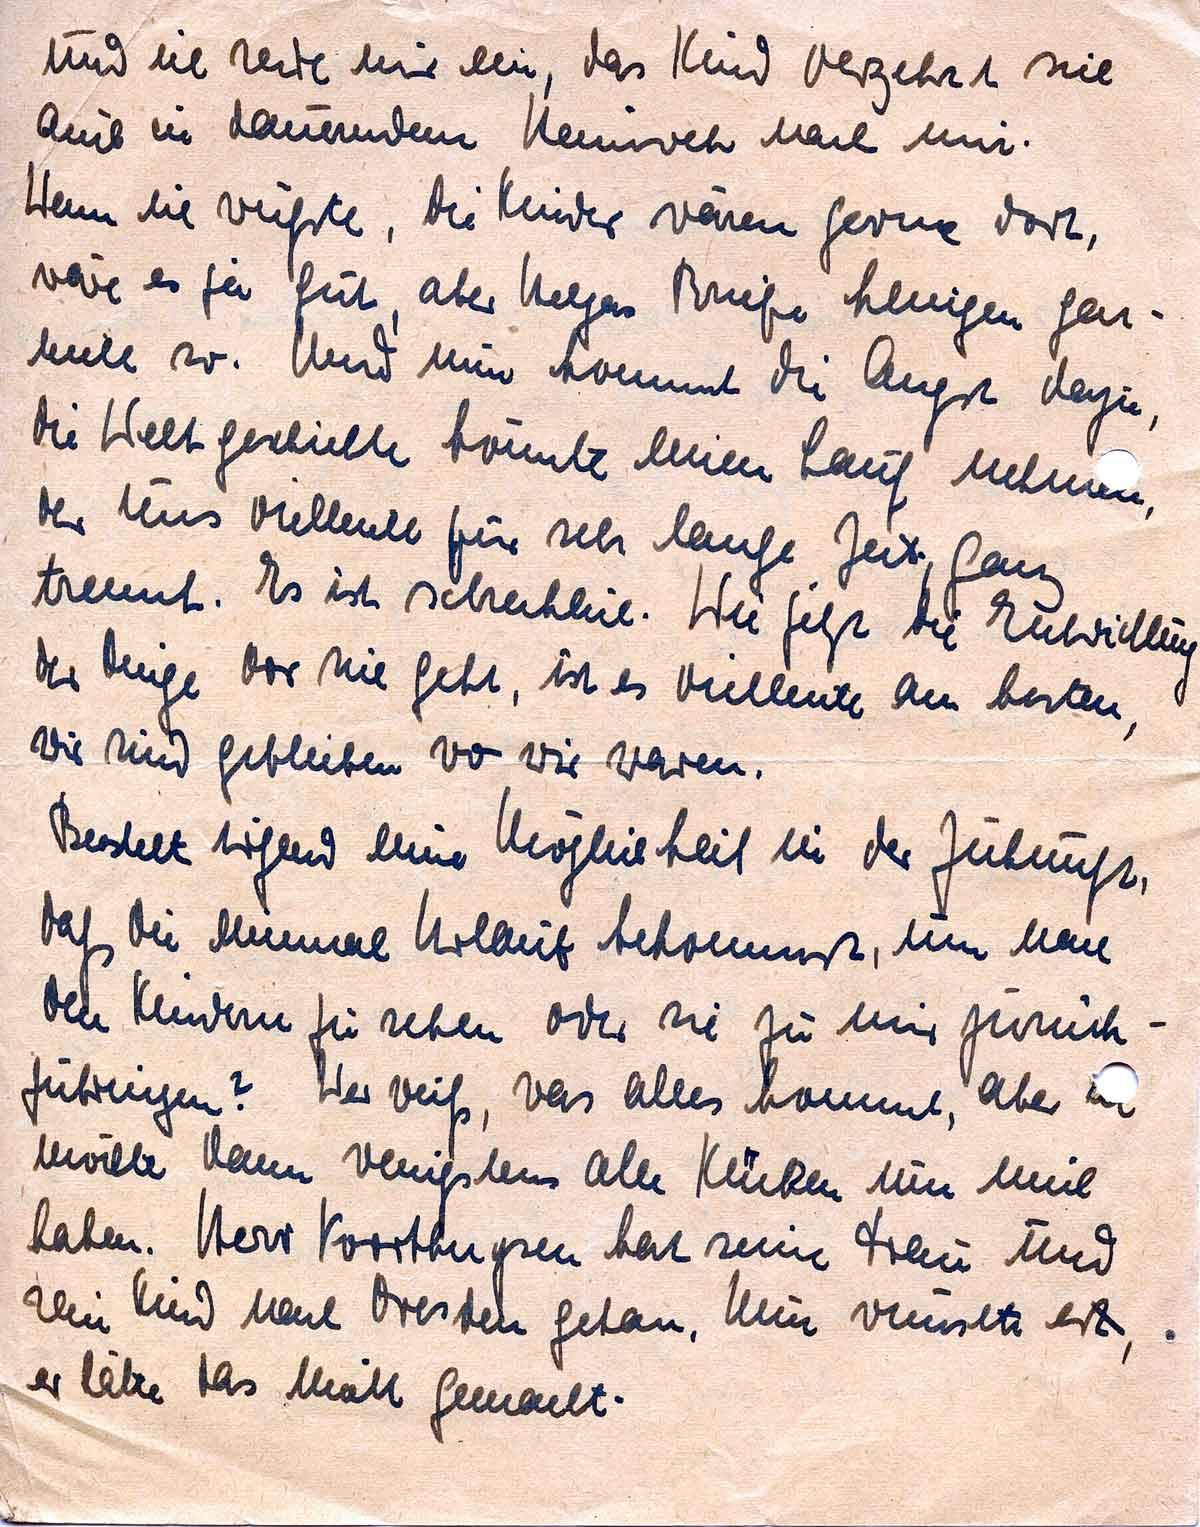 und ich rede mir ein, das Kind verzehrt sich
auch in dauerndem Heimweh nach mir.
Wenn ich wüsste, die Kinder wären gerne dort,
wäre es ja gut, aber Helgas Briefe klingen gar-
nicht so. Und nun kommt die Angst dazu,
die Weltgeschichte könnte einen Lauf nehmen,
der uns vielleicht für sehr lange Zeit, ganz
trennt. Es ist schrecklich. Wie jetzt die Entwicklung
der Dinge vor sich geht, ist es vielleicht am besten,
wir sind geblieben wo wir waren.
Besteht irgend eine Möglichkeit in der Zukunft,
daß Du einmal Urlaub bekommst, um nach
den Kindern zu sehen oder sie zu mir zurück-
zubringen? Wer weiß, was alles kommt, aber ich
möchte dann wenigstens alle Küken um mich
haben. Herr Voorthuysen hat seine Frau und
sein Kind nach Dresden getan. Nun wünscht er,
er hätte das nicht gemacht.